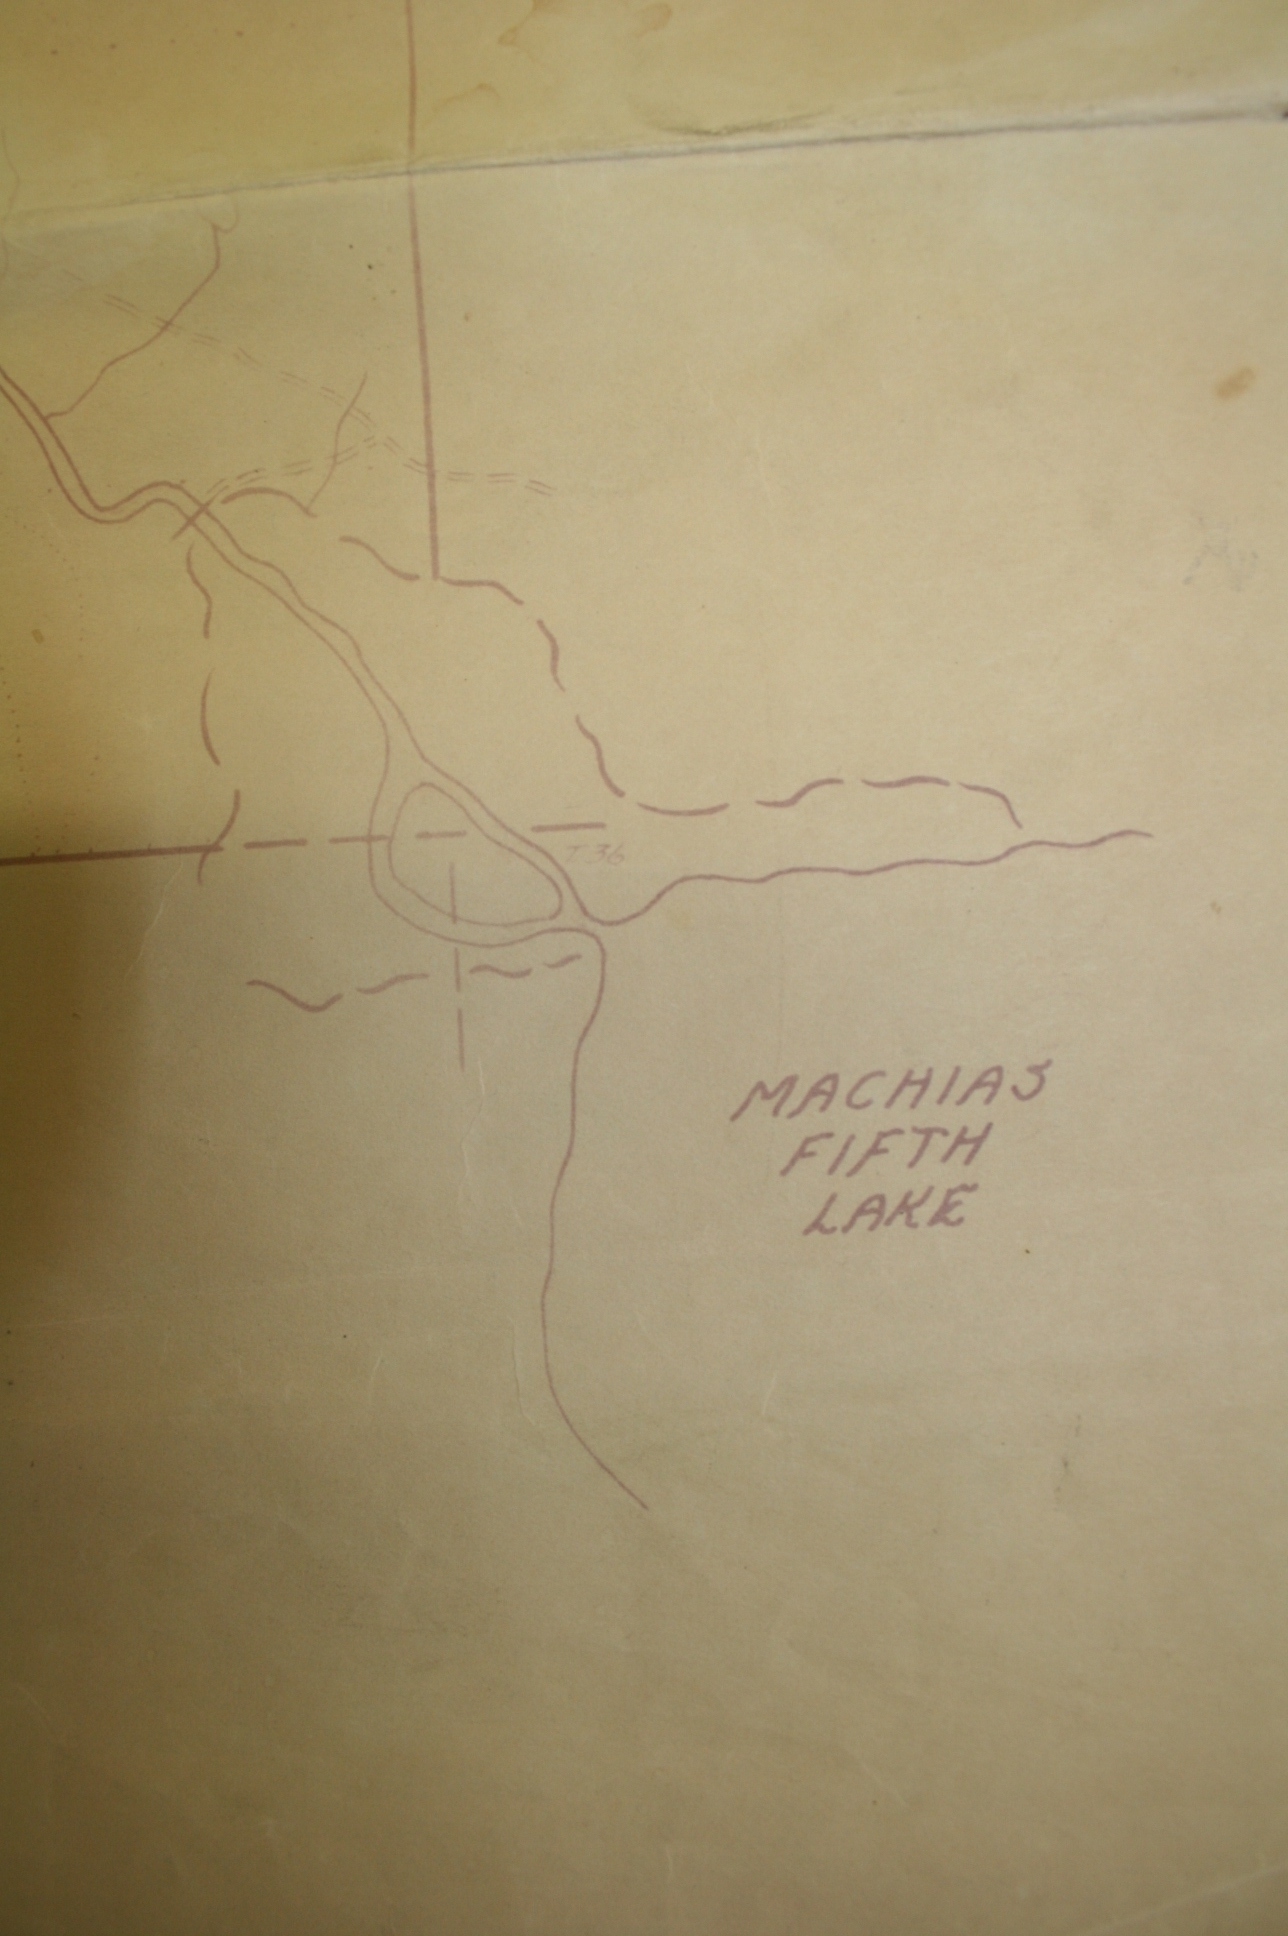 T 36
MACHIAS
FIFTH
LAKE